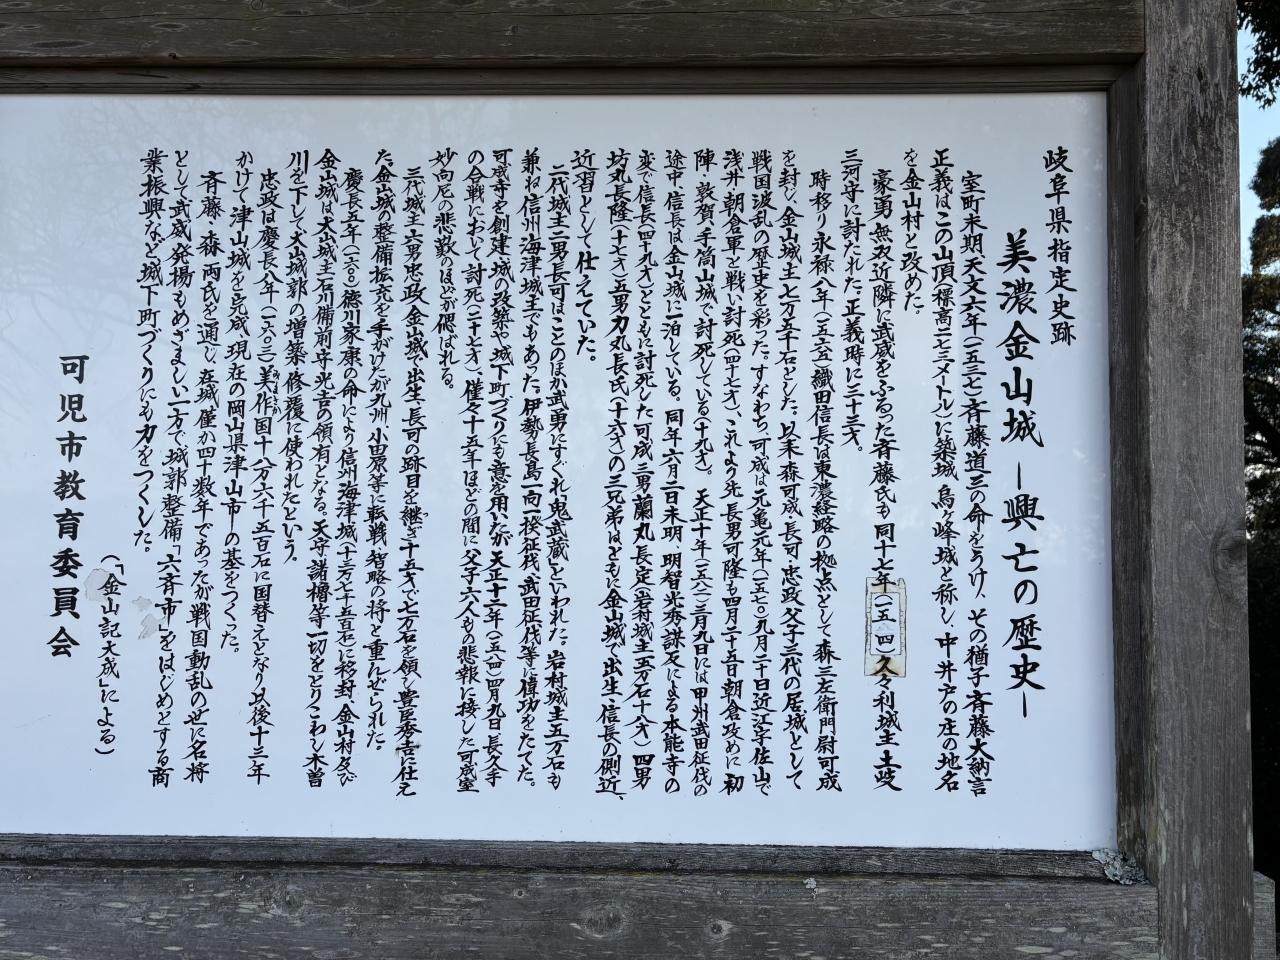 岐阜県指定史跡
美濃金山城 ―興亡の歴史―
室町末期天文六年(一五三七)斉藤道三の命をうけ、その猶子斉藤大納言
正義はこの山頂(標高二七三メートル)に築城、烏ヶ峰城と称し、中井戸の庄の地名
を金山村と改めた。
豪勇無双近隣に武威をふるった斉藤氏も同十七年(一五四)久々利城主土岐
三河守に討たれた。正義時に三十三才。
時移り永禄八年(一五六五)織田信長は東濃経略の拠点として森三左衛門尉可成
を封じ、金山城主七万五千石とした。以来森可成、長可、忠政父子三代の居城として
戦国波乱の歴史を彩った。すなわち、可成は元亀元年(一五七〇)九月二十日近江宇佐山で
浅井朝倉軍を戦い討死(四十七才)、これより先長男可隆も四月二十五日朝倉攻めに初
陣、敦賀手筒山城で討死している(十九才)。天正十年(一五八二)三月九日には甲州武田征伐の
途中信長は金山城に一泊している。同年六月二日未明、明智光秀謀反による本能寺の
変で信長(四十九才)とともに討死した可成三男蘭丸長定(岩村城主五万石十八才)四男
坊丸長隆(十七才)五男力丸長氏(十六才)の三兄弟はともに金山城で出生、信長の側近、
近習として仕えていた。
二代城主二男長可はことのほか武勇にすぐれ「鬼武蔵」といわれた。岩村城主五万石も
兼ね信州海津城主でもあった。伊勢長島一向一揆征伐、武田征伐等に偉功をたてた。
可成寺を創建、城の改築や城下町づくりにも意を用いたが天正十二年(一五八四)四月九日長久手
の合戦において討死(二十七才)、僅々十五年ほどの間に父子六人もの悲報に接した可成室
妙向尼の悲歎のほどが偲ばれる。
三代城主六男忠政、金山城で出生、長可の跡目を継ぎ十五才で七万石を領し豊臣秀吉に仕え
た。金山城の整備拡充を手がけたが九州、小田原等に転戦、智略の将と重んぜられた。
慶長五年(一六〇〇)徳川家康の命により信州海津城(十三万七千五百石)に移封、金山村及び
金山城は犬山城主石川備前守光吉の領有となる。天守諸櫓等一切をとりこわし木曽
川を下して犬山城郭の増築・修覆に使われたという。
忠政は慶長八年(一六〇三)美作国十八万六千五百石に国替えとなり以後十三年
かけて津山城を完成、現在の岡山県津山市の基をつくった。
斉藤・森両氏を通じ在城僅か四十数年であったが戦国動乱の世に名将
として武威発揚もめざましい一方で城郭整備「六斉市」をはじめとする商
業振興など城下町づくりにも力をつくした。
(「金山記大成」による)
可児市教育委員会